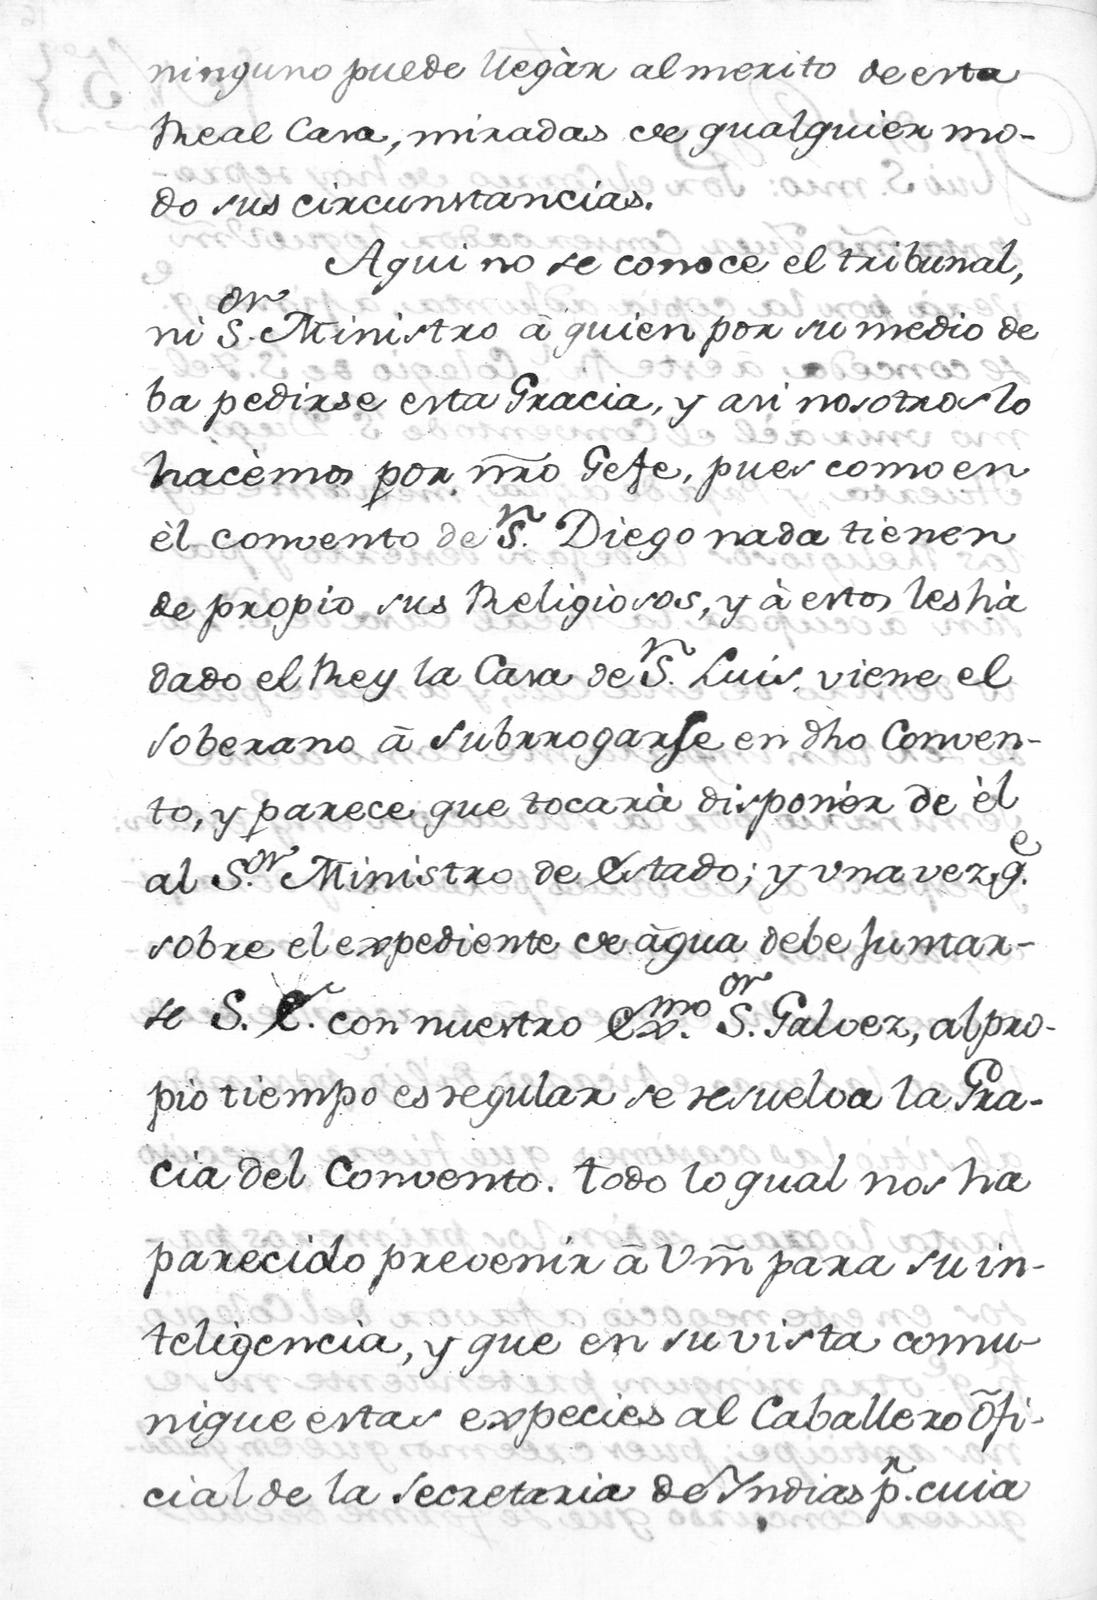 ninguno puede llegàr al merito de esta
Real Casa, miradas de qualquier mo-
do sus circunstancias.
Aqui no se conoce el tribunal,
ni S.or Ministro â quien por su medio de
ba pedirse esta Gracia, y asi nosotros lo
hacèmos por nr̃o Gefe, pues como en
èl convento de S.n Diego nada tienen
de propio sus Religiosos, y à estos les hà
dado el Rey la Casa de S.n Luis, viene el
soberano â subrrogarse en dho Conven-
to, y parece que tocarà disponèr de èl
al S.or Ministro de Estado; y vna vez q.e
sobre el expediente de âgua debe juntar-
se S. E. con nuestro Ex.mo S.or Galvez, al pro-
pio tiempo es regular se resuelva la Gra-
cia del Convento. todo lo qual nos ha
parecido prevenir â Vm̃ para su in-
teligencia, y que en su vista comu-
nique estas expecies al Caballero Ofi-
cial de la secretaria de Yndias p.r cuia